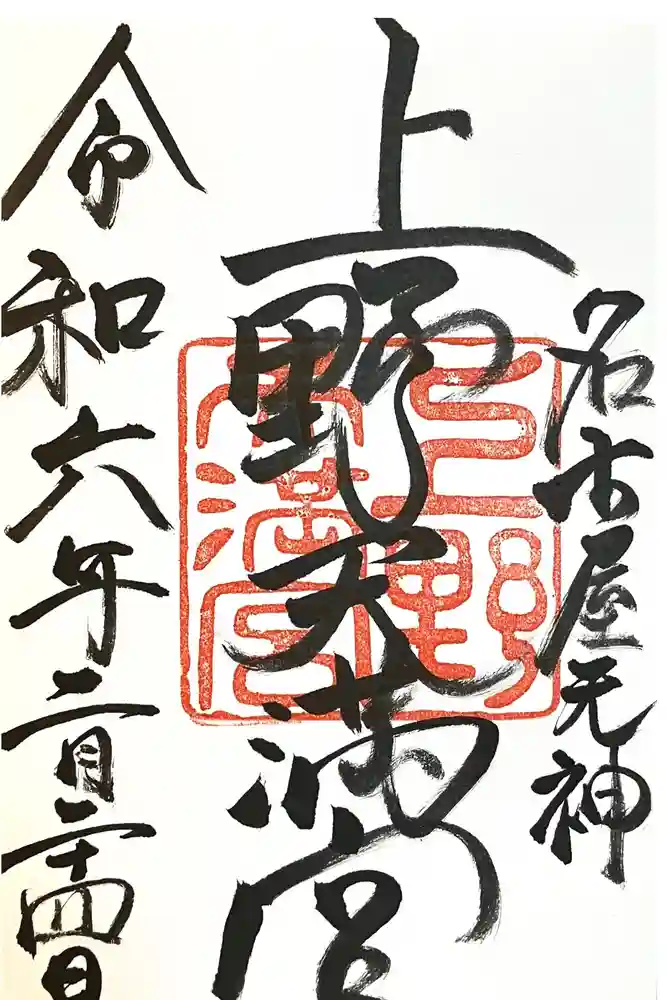 名古屋天神
上野天満宮
令和六年二月二十四日
上野
天満宮